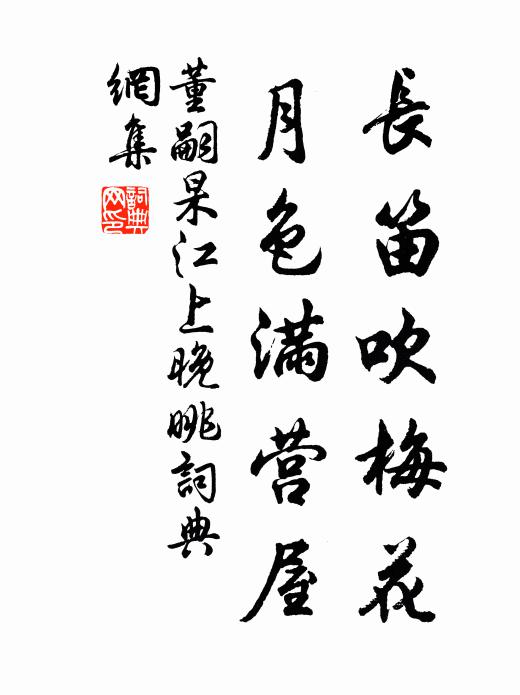 長笛吹梅花
月色滿營屋
董嗣杲江上晚眺詞典
網集
詞典網印